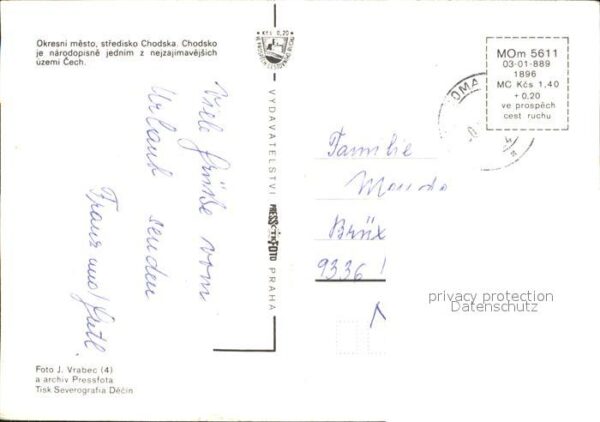 Okresní město, středisko Chodska. Chodsko
je národopisně jedním z nejzajímavějších
území Čech.
Kčs 0,20
Viele Grüße vom
Urlaub senden
Franz und
VYDAVATELSTVÍ PRESSFOTO PRAHA
MOm 5611
03-01-889
1896
MC Kčs 1,40
+ 0,20
ve prospěch
cest ruchu
DOMA
Familie
Brüx
9336!
privacy protection
Datenschutz
Foto J. Vrabec (4)
a archiv Pressfota
Tisk Severografia Děčín